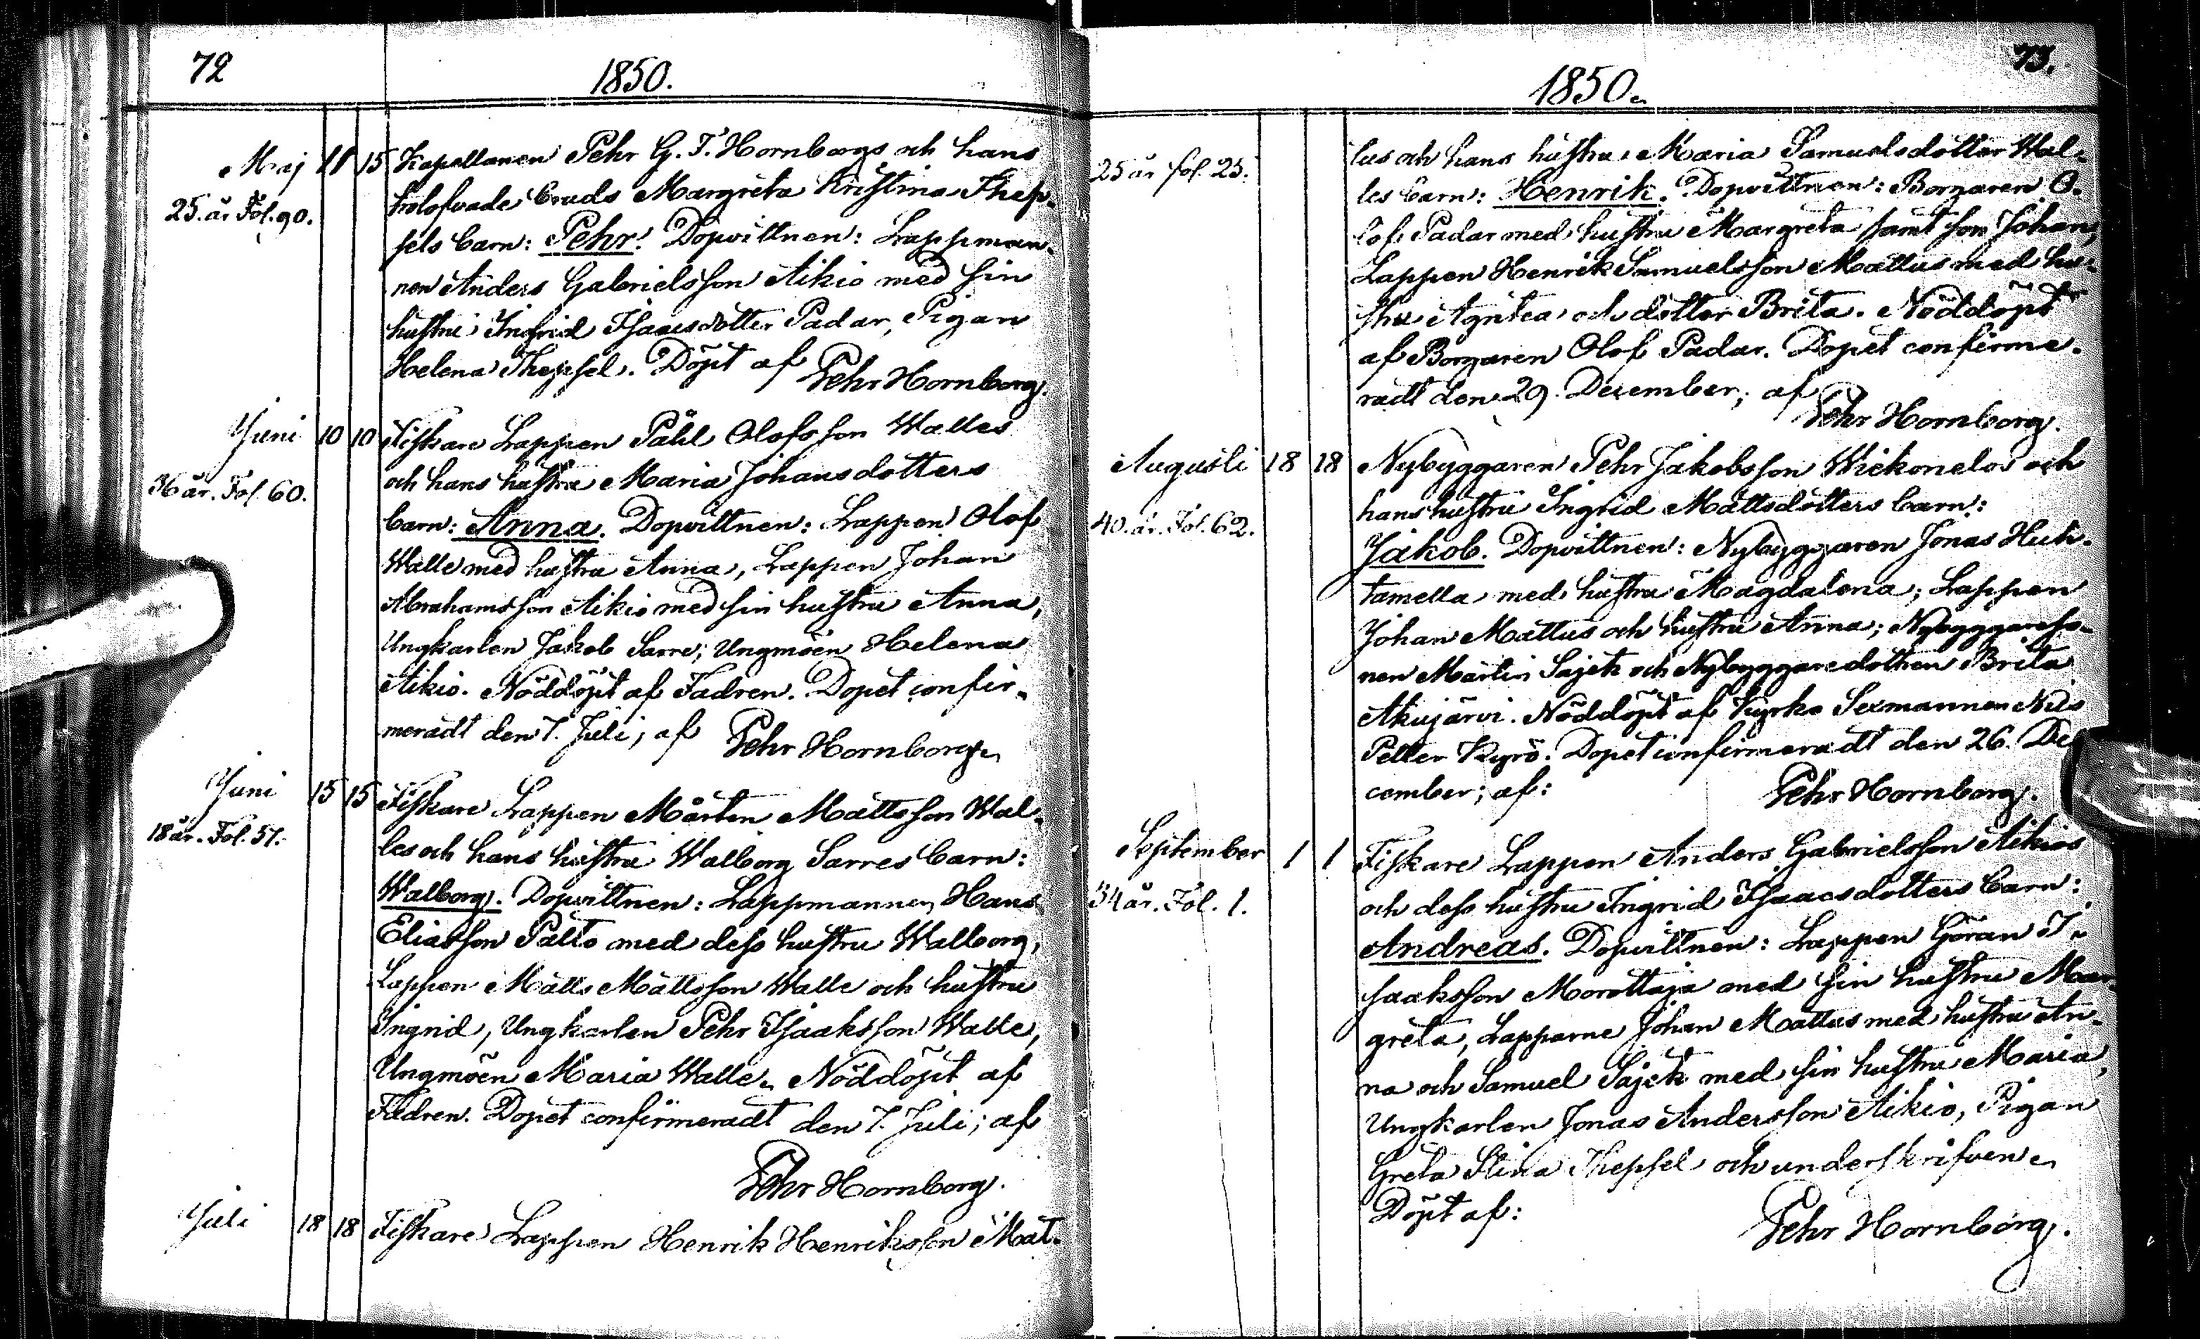 72
1850.
Maj 11 15 Kapellanen Pehr G. T. Hornborgs och hans
25. år Fol. 90.
trolofvade Bruds Margreta Kristina Thep-
sels barn: Pehr. Dopvittnen: Lappman-
nen Anders Gabrielsson Aikio med sin
hustru Ingrid Isaacsdotter Padar, Pigan
Helena Thepsel. Döpt af
Pehr Hornborg.
Juni 10 10 Fiskare Lappen Påhl Olofsson Walles
36 år. Fol. 60.
och hans hustru Maria Johansdotters
barn: Anna. Dopvittnen: Lappen Olof
Walle med hustru Anna, Lappen Johan
Abrahamsson Aikio med sin hustru Anna,
Ungkarlen Jakob Sarre; Ungmöen Helena
Aikio. Nöddöpt af Fadren. Dopet confir-
meradt den 7. Juli; af
Pehr Hornborg.
Juni 15 15 Fiskare Lappen Mårten Mattsson Wal-
18 år. Fol. 57.
les och hans hustru Walborg Sarres barn:
Walborg. Dopvittnen: Lappmannen Hans
Eliasson Palto med dess hustru Walborg,
Lappen Matts Mattsson Walle och hustru
Ingrid, Ungkarlen Pehr Isaaksson Walle,
Ungmöen Maria Walle. Nöddöpt af
Fadren. Dopet confirmeradt den 7. Juli; af
Pehr Hornborg.
Juli 18 18 Fiskare Lappen Henrik Henriksson Mat-
73.
1850.
25 år fol. 25.
lus och hans hustru Maria Samuelsdotter Wal-
les barn: Henrik. Dopvittnen: Borgaren O-
lof Padar med hustru Margreta samt son Johan,
Lappen Henrik Samuelsson Mattus med hu-
stru Agneta och dotter Brita. Nöddöpt
af Borgaren Olof Padar. Dopet confirme-
radt den 29. December; af
Pehr Hornborg.
Augusti 18 18 Nybyggaren Pehr Jakobsson Kiekonelos och
40. år. Fol. 62.
hans hustru Ingrid Mattsdotters barn:
Jakob. Dopvittnen: Nybyggaren Jonas Huh-
tamella med hustru Magdalena; Lappen
Johan Mattus och hustru Anna; Nybyggareso-
nen Martin Sajek och Nybyggaredottren Brita
Akujärvi. Nöddöpt af Kyrko Sexmannen Nils
Petter Kyrö. Dopet confirmeradt den 26. De-
cember; af:
Pehr Hornborg.
September 1 1 Fiskare Lappen Anders Gabrielsson Aikios
34 år. Fol. 1.
och dess hustru Ingrid Isaacsdotters barn:
Andreas. Dopvittnen: Lappen Göran I-
saaksson Morottaja med sin hustru Mar-
greta, Lapparne Johan Mattus med hustru An-
na och Samuel Sajek med sin hustru Maria,
Ungkarlen Jonas Andersson Aikio, Pigan
Greta Stina Thepsel och underskrifven.
Döpt af:
Pehr Hornborg.